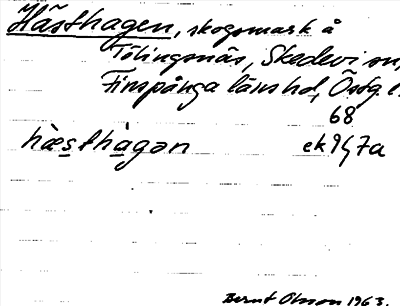 Hästhagen, skogsmark å
Tölingsnäs, Skedevi sn,
Finspånga läns hd, Östg. l.
68
hæ̀sthàgən ek 9G7a
Bernt Olsson 1963.